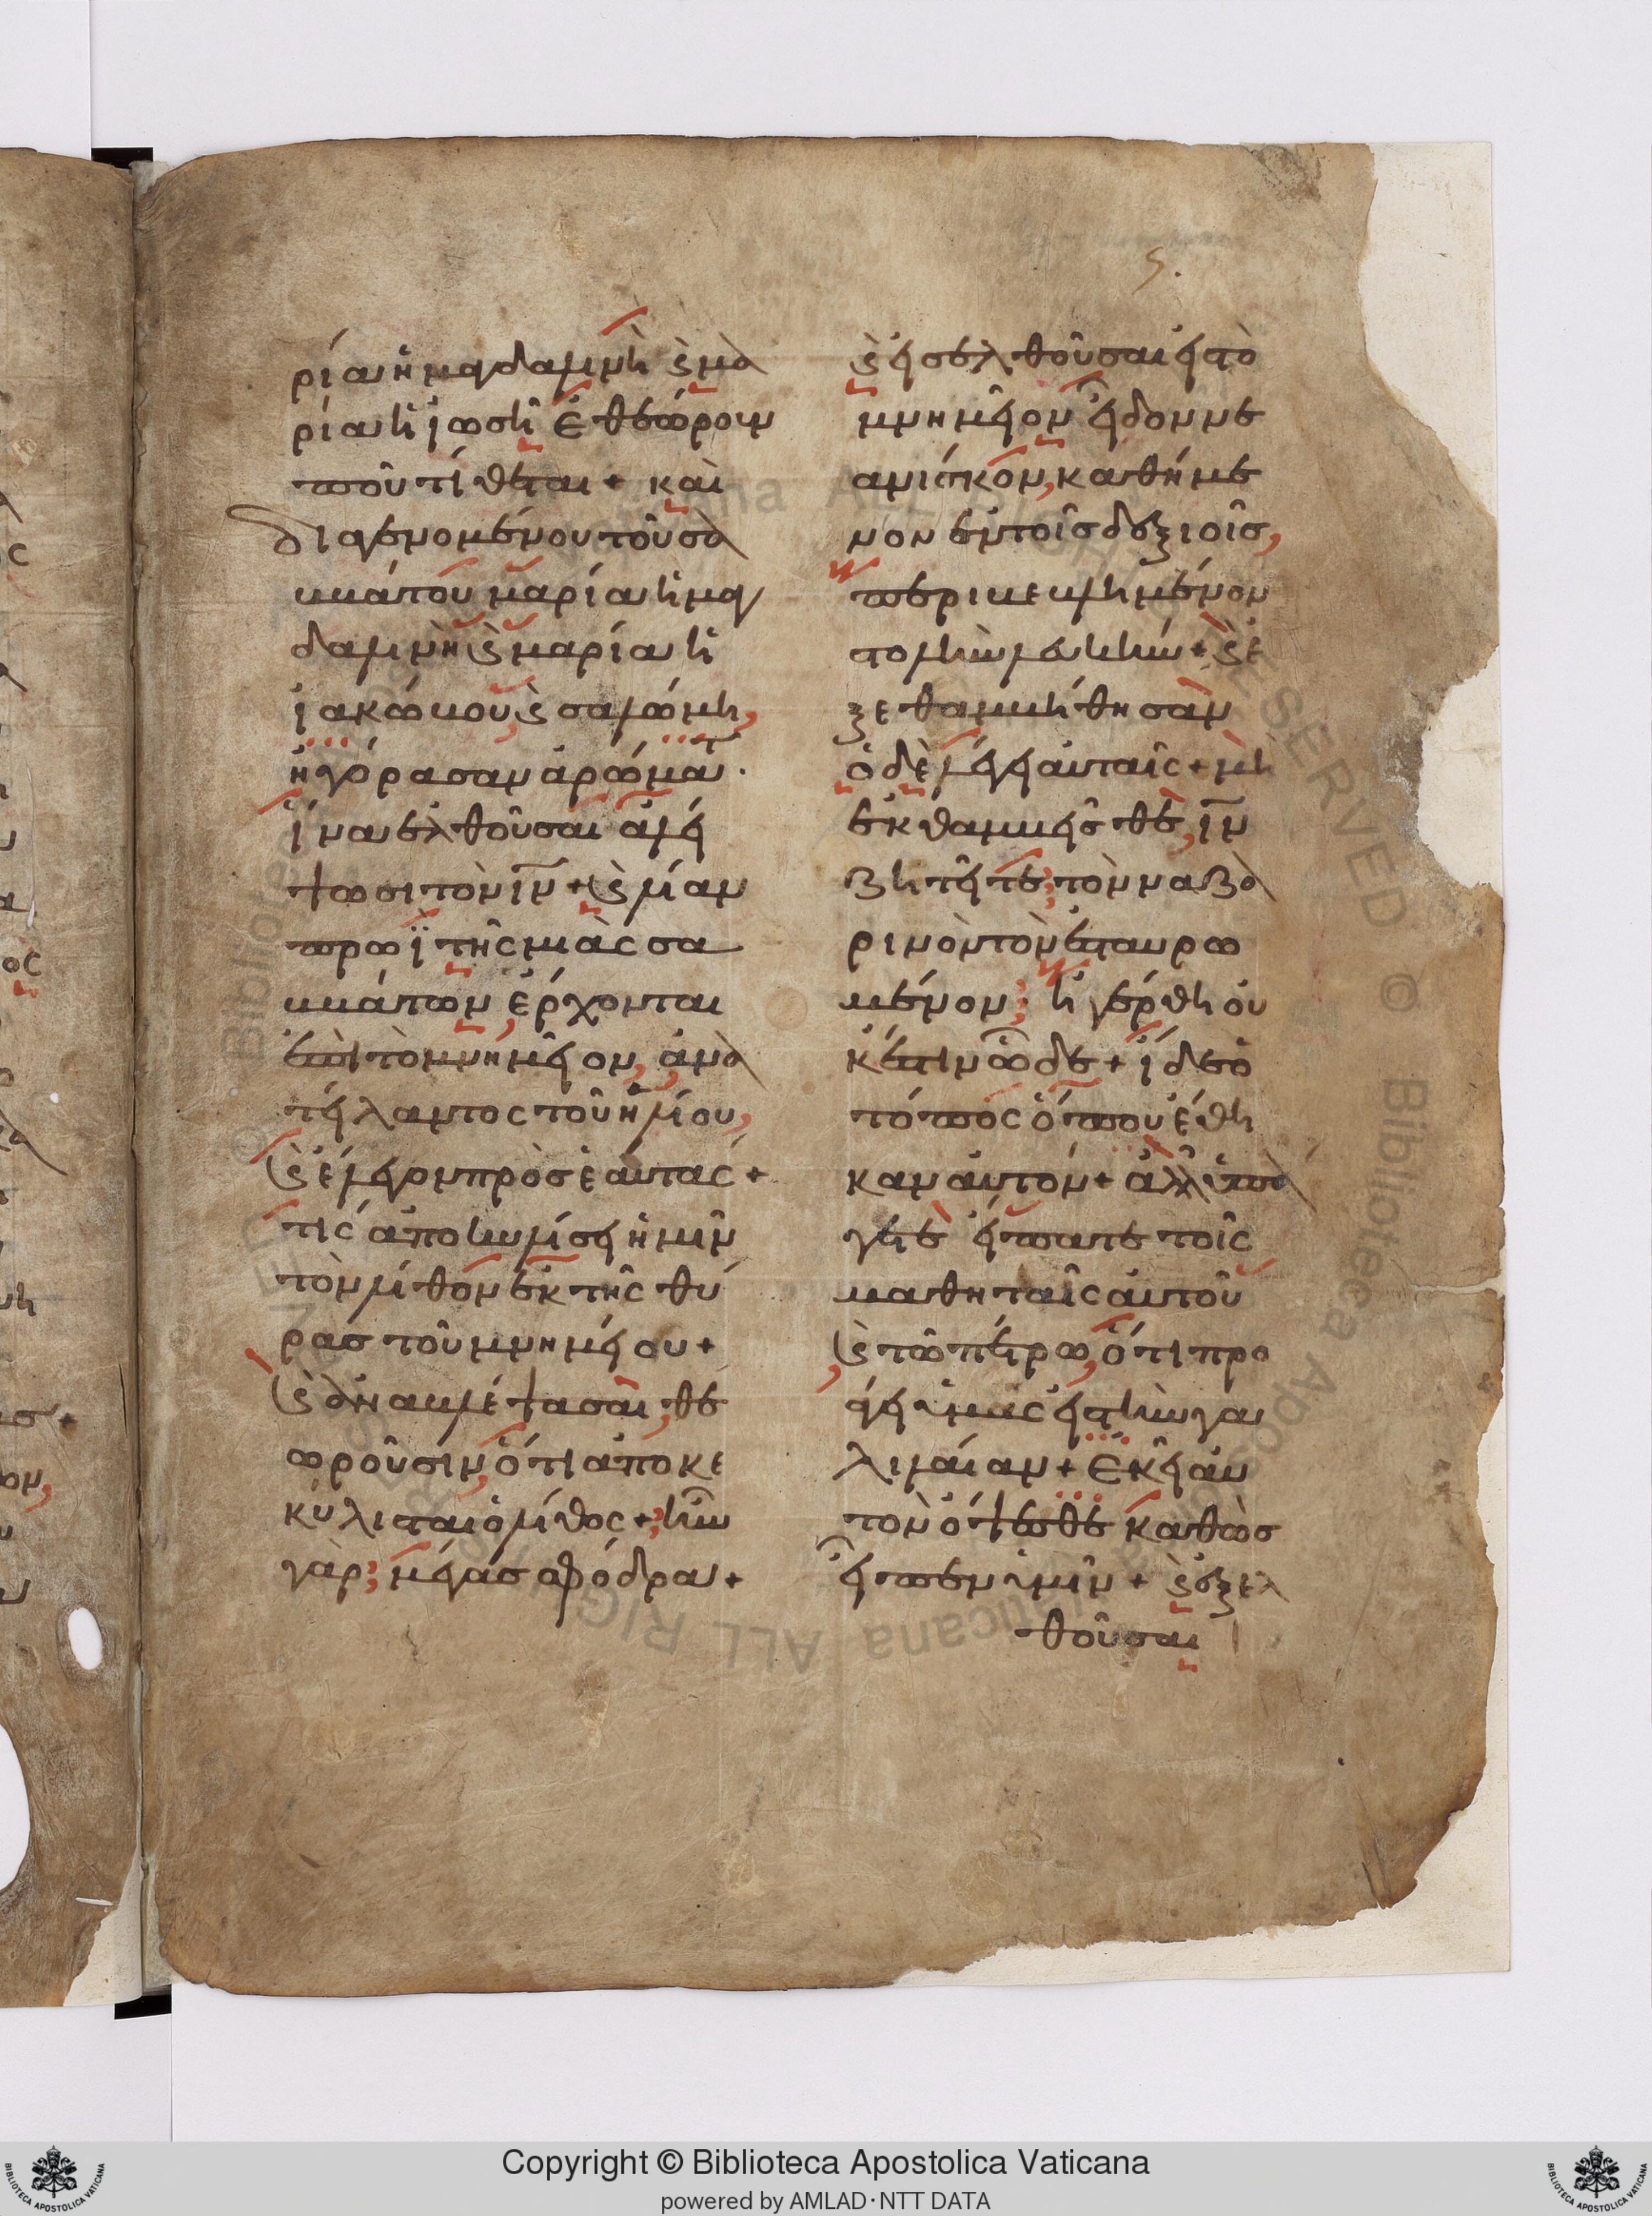 ς.
ρία ἡ μαγδαληνὴ ϗ μα
ρία ἡ ἰωσὴ ἐθεώρουν
ποῦ τίθεται + καὶ
διαγενομένου τοῦ σα
ββάτου μαρία ἡ μαγ
δαληνὴ ϗ μαρία ἡ
ἰακώβου ϗ σαλώμη,
ἠγόρασαν ἀρώματα.
ἵνα ἐλθοῦσαι ἀλεί
ψωσι τὸν ιν + ϗ λίαν
πρωῒ τῆς μιᾶς σα
ββάτων ἔρχονται
ἐπὶ τὸ μνημεῖον, ἀνα
τείλαντος τοῦ ἡλίου,
ϗ ἔλεγον πρὸς ἑαυτάς +
τίς ἀποκυλίσει ἡμῖν
τὸν λίθον ἐκ τῆς θύ
ρας τοῦ μνημείου +
ϗ ἀναβλέψασαι, θε
ωροῦσιν, ὅτι ἀποκε
κύλισται ὁ λίθος + ἦν
γὰρ μέγας σφόδρα +
ϗ εἰσελθοῦσαι εἰς τὸ
μνημεῖον εἶδον νε
ανίσκον, καθήμε
νον ἐν τοῖς δεξιοῖς,
περιβεβλημένον
στολὴν λευκήν + ϗ ἐ
ξεθαμβήθησαν
ὁ δὲ λέγει αὐταῖς + μὴ
ἐκθαμβεῖσθε, ιν
ζητεῖτε, τὸν ναζα
ρινὸν τὸν ἐσταυρω
μένον; ἠγέρθη οὐ
κ ἔστιν ὧδε + ἴδε ὁ
τόπος ὅπου ἔθη
καν αὐτόν + ἀλλ ὑπά
γετε εἴπατε τοῖς
μαθηταῖς αὐτοῦ
ϗ τῶ πέτρω, ὅτι προ
άγει ὑμᾶς εἰς τὴν γα
λιλαίαν + ἐκεῖ αὐ
τὸν ὄψεσθε καθὼς
εἶπεν ὑμῖν + ϗ ἐξελ
θοῦσαι
Copyright © Biblioteca Apostolica Vaticana
powered by AMLAD·NTT DATA